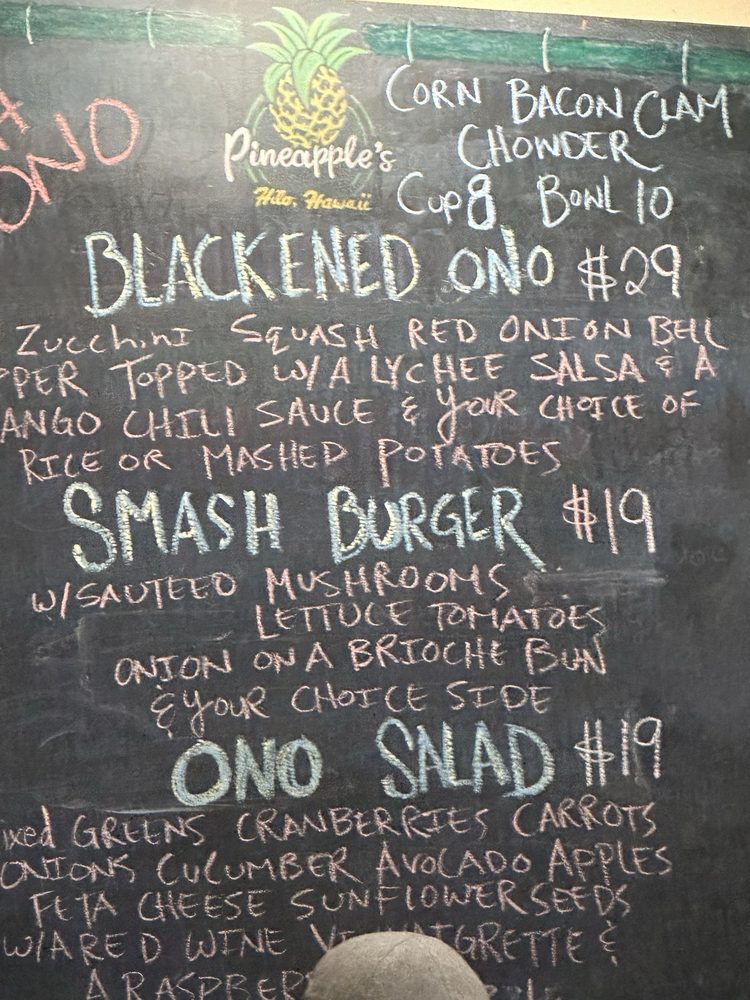 ONO
Pineapple's
Hilo, Hawaii
CORN BACON CLAM
CHOWDER
CUP 8 BOWL 10
BLACKENED ONO $29
Zucchini SQUASH RED ONION BELL
PPER TOPPED W/A LYCHEE SALSA & A
ANGO CHILI SAUCE & YOUR CHOICE OF
RICE OR MASHED POTATOES
SMASH BURGER $19
W/SAUTEED MUSHROOMS
LETTUCE TOMATOES
ONION ON A BRIOCHE BUN
& YOUR CHOICE SIDE
ONO SALAD $19
ixed GREENS CRANBERRIES CARROTS
ONIONS CUCUMBER AVOCADO APPLES
FETA CHEESE SUNFLOWER SEEDS
W/A RED WINE VINAIGRETTE &
A RASPBER